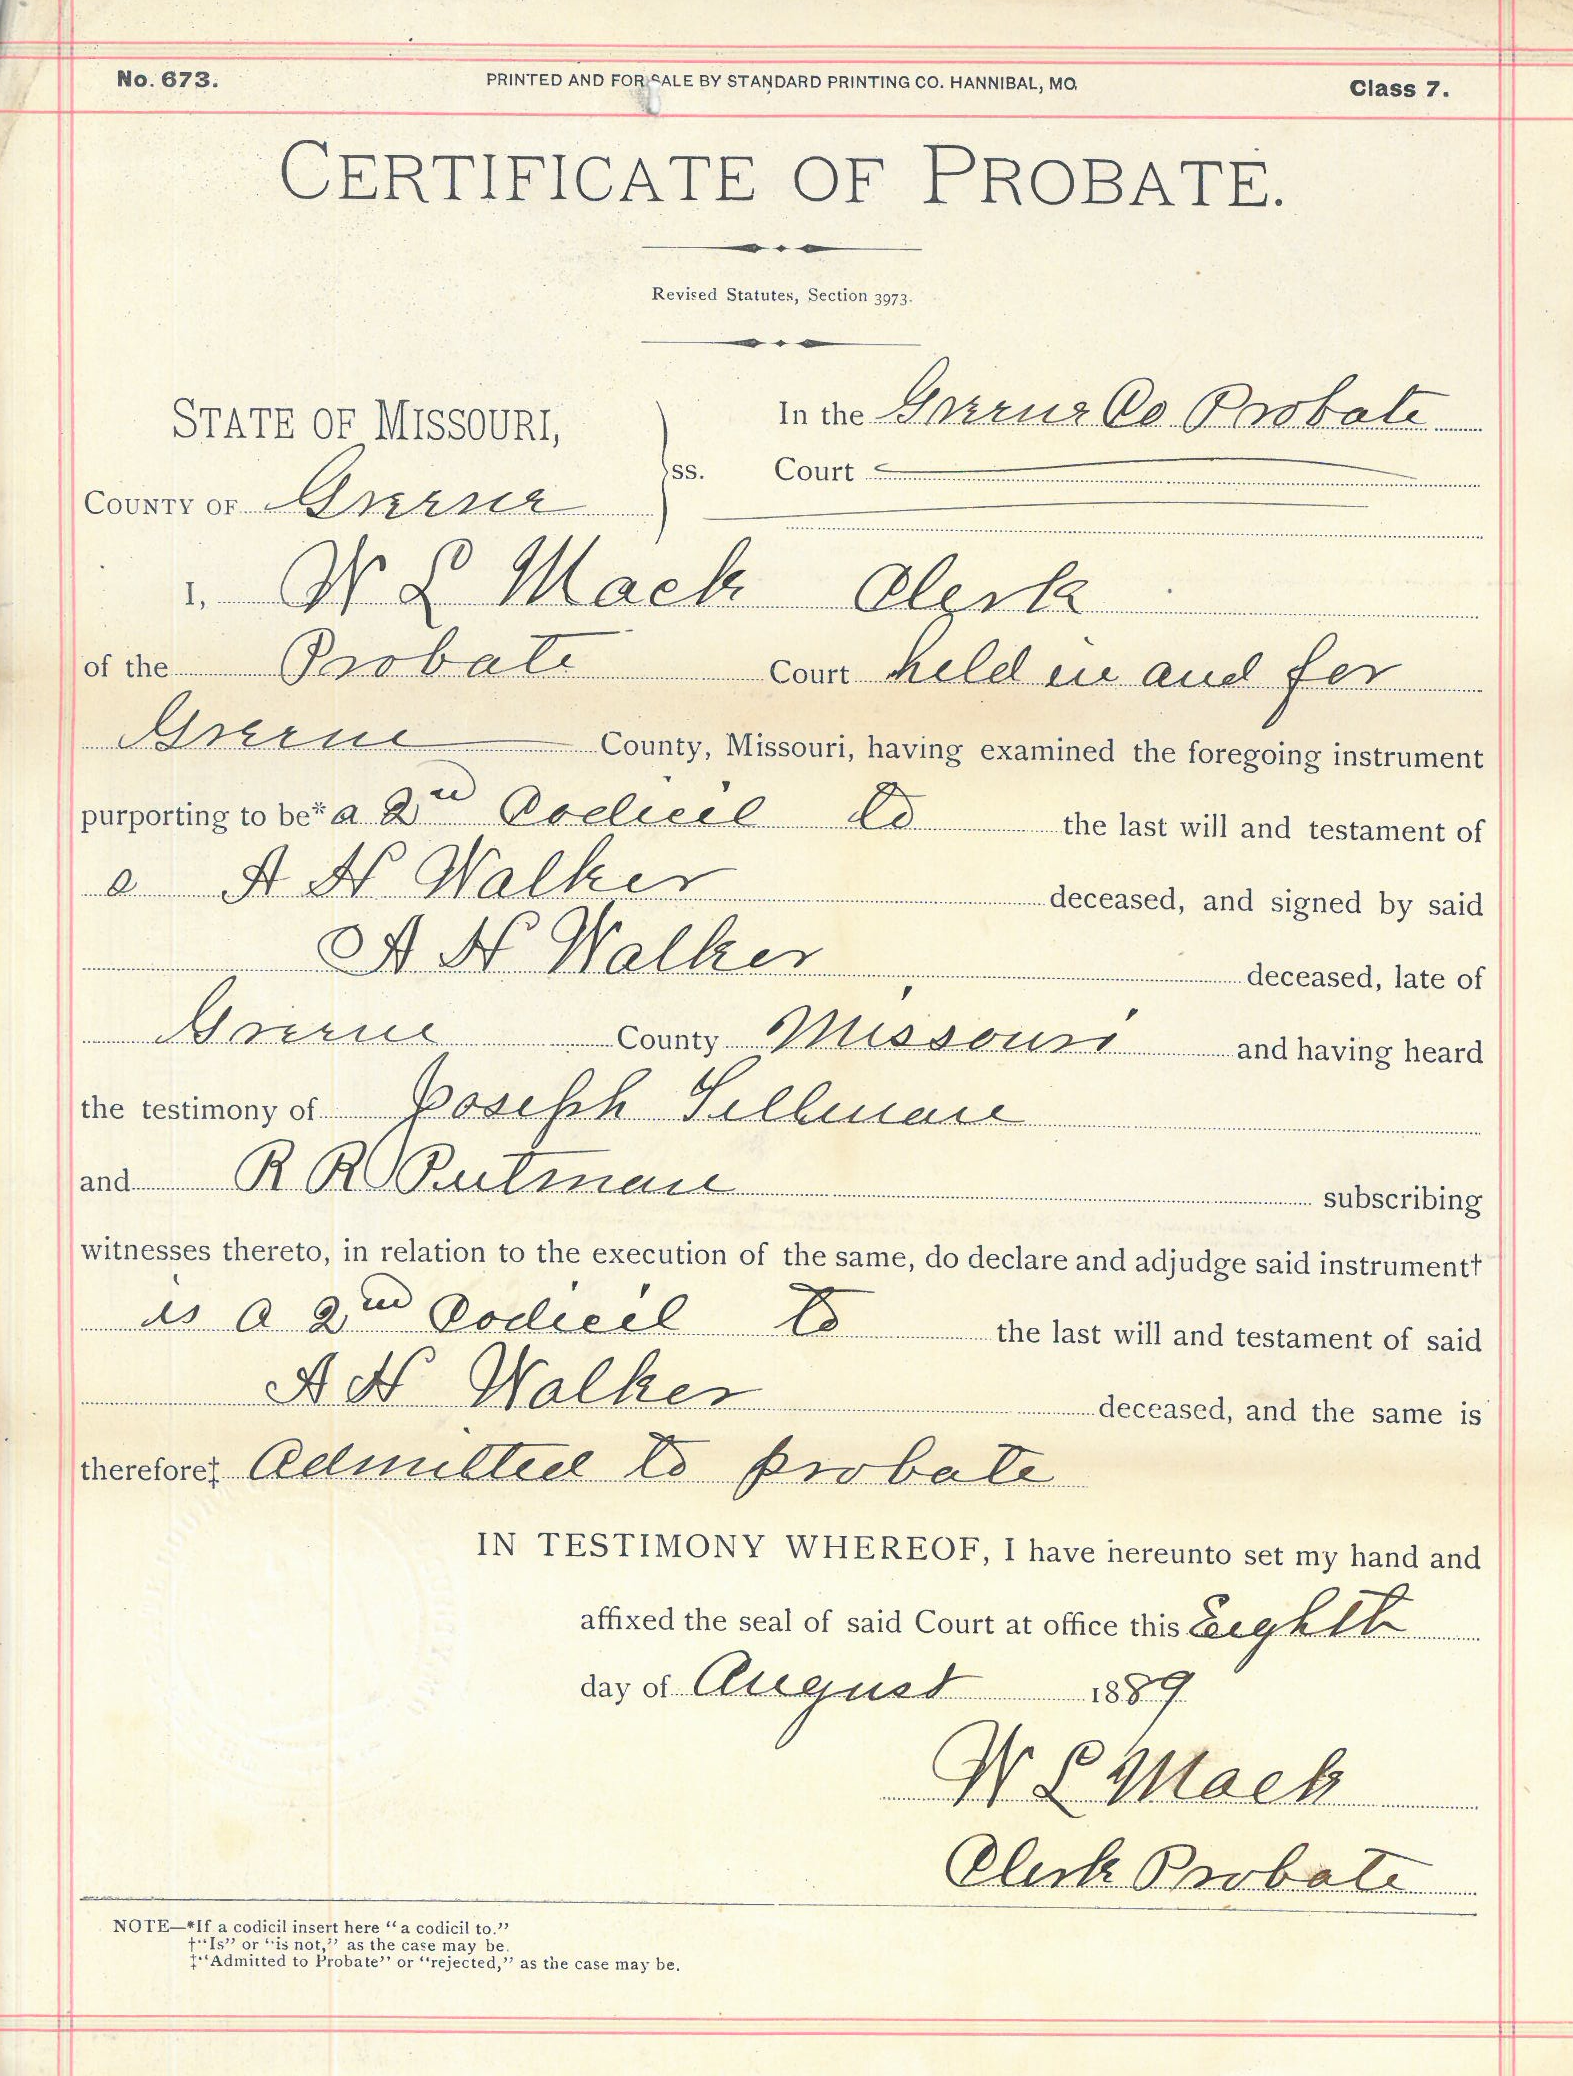 No. 673. PRINTED AND FOR SALE BY STANDARD PRINTING CO. HANNIBAL, MO. Class 7.
CERTIFICATE OF PROBATE.
Revised Statutes, Section 3973.
STATE OF MISSOURI,
COUNTY OF Greene
ss.
In the Greene Co Probate
Court
I, W L Mack Clerk
of the Probate Court held in and for
Greene County, Missouri, having examined the foregoing instrument
purporting to be* a 2nd Codicil to the last will and testament of
A H Walker deceased, and signed by said
A H Walker deceased, late of
Greene County Missouri and having heard
the testimony of Joseph Sillman
and R R Putman subscribing
witnesses thereto, in relation to the execution of the same, do declare and adjudge said instrument†
is a 2nd Codicil to the last will and testament of said
A H Walker deceased, and the same is
therefore‡ Admitted to probate
IN TESTIMONY WHEREOF, I have hereunto set my hand and
affixed the seal of said Court at office this Eighth
day of August 1889
W L Mack
Clerk Probate
NOTE—*If a codicil insert here "a codicil to."
†"Is" or "is not," as the case may be.
‡"Admitted to Probate" or "rejected," as the case may be.